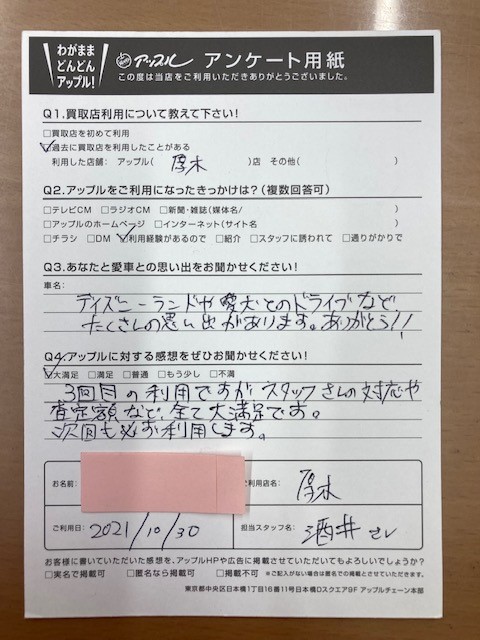 わがまま
どんどん
アップル!
アップル アンケート用紙
この度は当店をご利用いただきありがとうございました。
Q1.買取店利用について教えて下さい!
□買取店を初めて利用
☑過去に買取店を利用したことがある
利用した店舗: アップル( 厚木 )店 その他( )
Q2.アップルをご利用になったきっかけは?(複数回答可)
□テレビCM □ラジオCM □新聞・雑誌(媒体名/ )
□アップルのホームページ □インターネット(サイト名 )
□チラシ □DM ☑利用経験があるので □紹介 □スタッフに誘われて □通りがかりで
Q3.あなたと愛車との思い出をお聞かせください!
車名:
ディズニーランドや愛犬とのドライブなど
たくさんの思い出があります。ありがとう!!
Q4.アップルに対する感想をぜひお聞かせください!
☑大満足 □満足 □普通 □もう少し □不満
3回目の利用ですが、スタッフさんの対応や
査定額など、全て大満足です。
次回も必ず利用します。
お名前:
ご利用店名: 厚木
ご利用日: 2021/10/30
担当スタッフ名: 酒井さん
お客様に書いていただいた感想を、アップルHPや広告に掲載させていただいてもよろしいでしょうか?
□実名で掲載可 □匿名なら掲載可 □掲載不可 ※ご記入がない場合は匿名での掲載とさせていただきます。
東京都中央区日本橋1丁目16番11号日本橋Dスクエア9F アップルチェーン本部